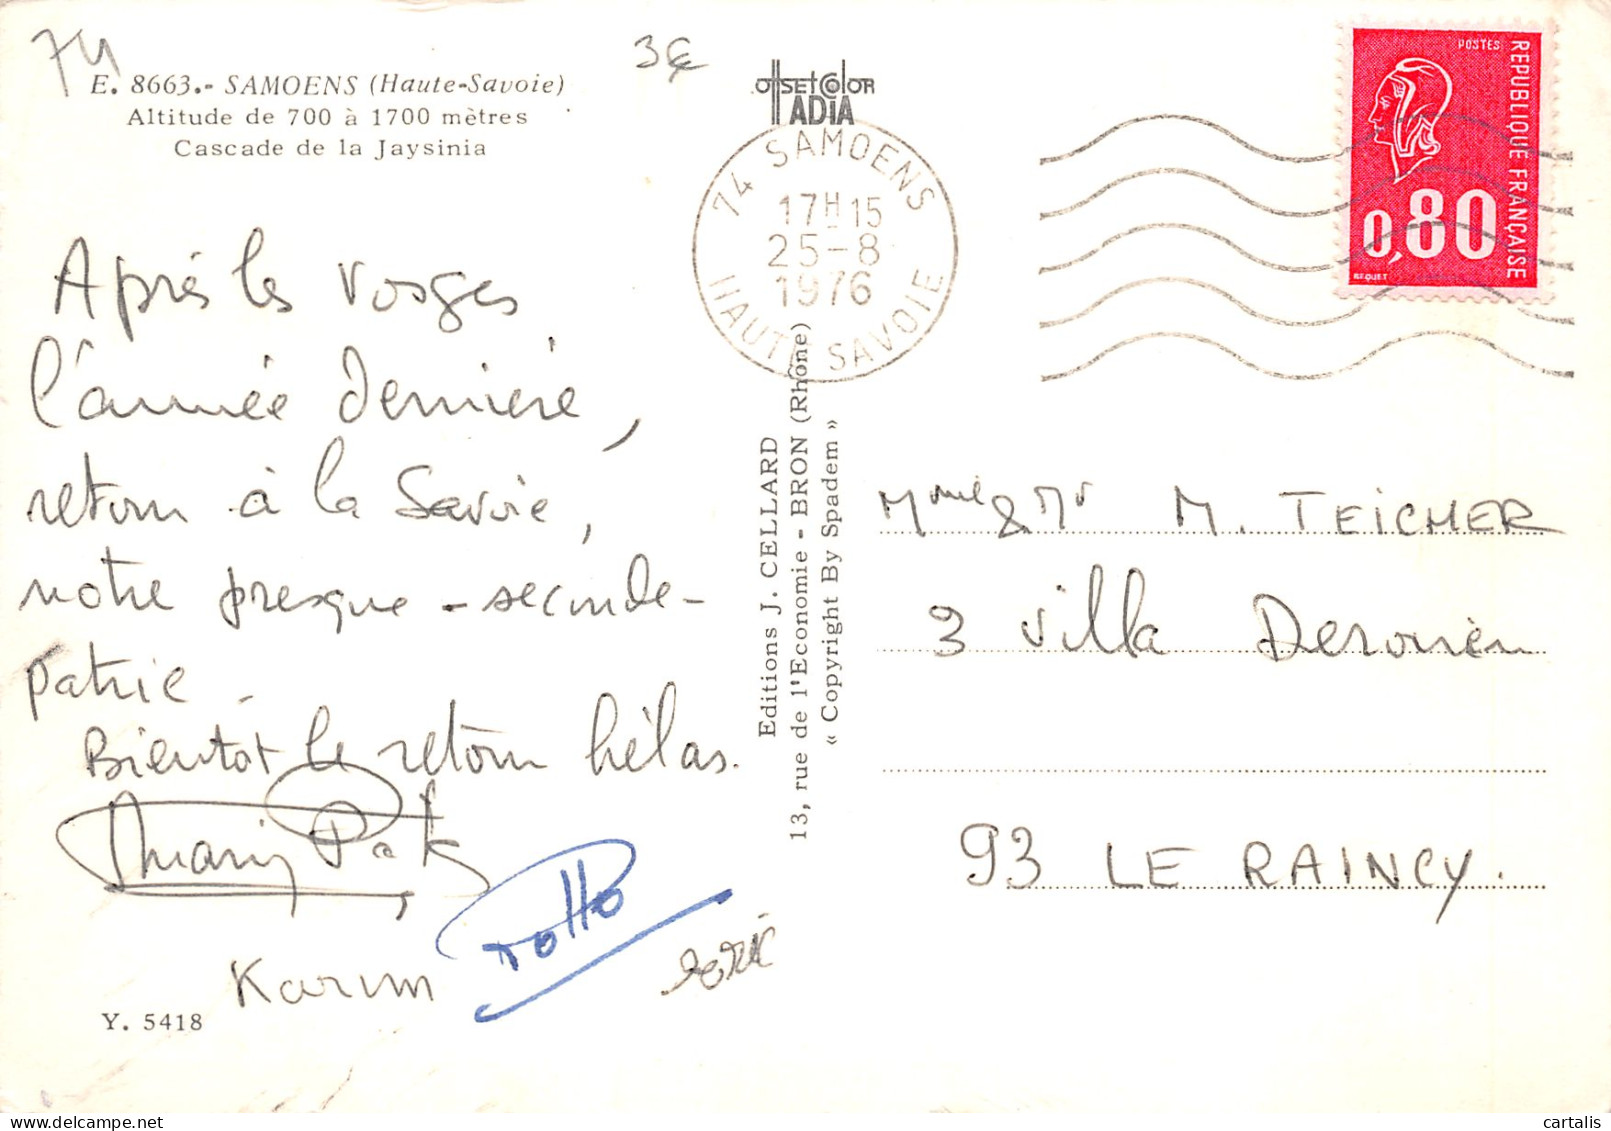 74
3€
E. 8663.- SAMOENS (Haute-Savoie)
Altitude de 700 à 1700 mètres
Cascade de la Jaysinia
Après les Vosges
l'année dernière,
retour à la Savoie,
notre presque-seconde-
patrie.
Bientôt le retour hélas.
Thierry Pat
Karim
Y. 5418
offset color
ADIA
74 SAMOENS
17H15
25-8
1976
HAUTE SAVOIE
Editions J. CELLARD
13, rue de l'Economie - BRON (Rhône)
« Copyright By Spadem »
POSTES
REPUBLIQUE FRANÇAISE
0,80
BEQUET
Mme & Mr M. TEICHER
3 Villa Derouën
93 LE RAINCY.
delcampe.net
cartalis